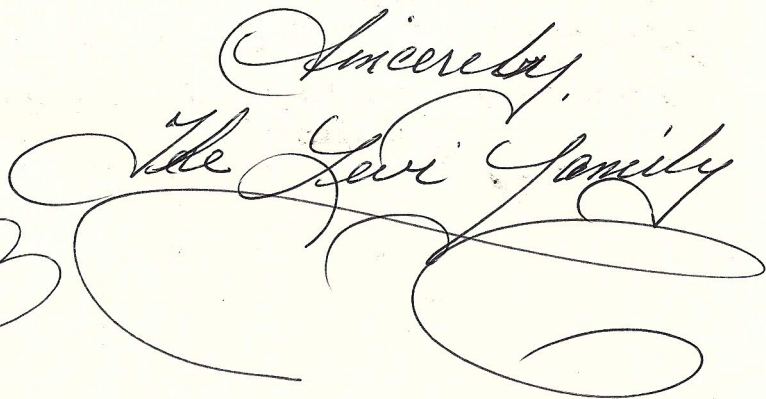 Sincerely,
The Levi Family